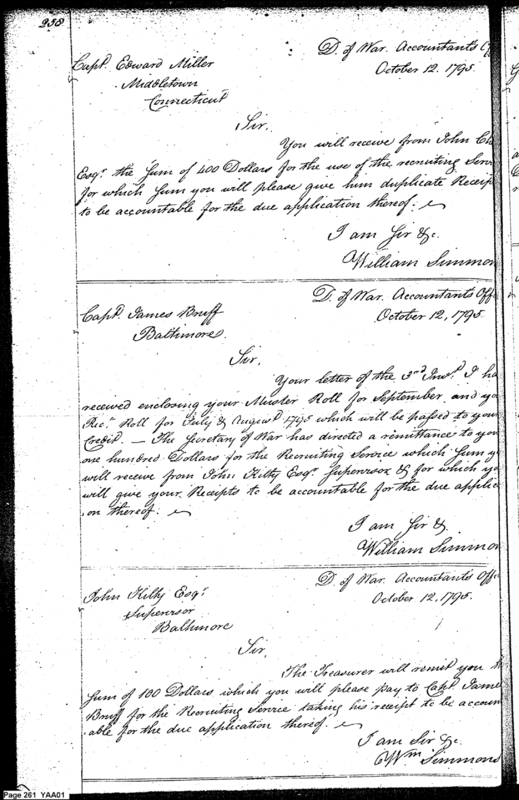 258
D. of War. Accountants Of
October 12, 1795.
Capt. Edward Miller
Middletown
Connecticut
Sir,
You will receive from John
Esqr. the Sum of 400 Dollars for the use of the recruiting Serv
for which Sum you will please give him duplicate Receip
to be accountable for the due application thereof.
I am Sir &c.
William Simmon
D. of War. Accountants Offi
October 12, 1795.
Capt. James Bruff
Baltimore.
Sir.
Your letter of the 3rd Inst. I ha
received enclosing your Muster Roll for September, and yo
Roll for July & August 1795 which will be passed to your
Credit. — The Secretary of War has directed a remittance to you
one hundred Dollars for the Recruiting Service which Sum y
will receive from John Kilty Esqr. Supervisor & for which yo
will give your Receipts to be accountable for the due applic
on thereof.
I am Sir &
William Simmon
D. of War. Accountants Offi
October 12, 1795.
John Kilty Esqr.
Supervisor
Baltimore
Sir,
The Treasurer will remit you th
Sum of 100 Dollars which you will please pay to Capt. Jame
Bruff for the Recruiting Service taking his receipt to be accoun
able for the due application thereof.
I am Sir &c.
Wm Simmons
Page 261 YAA01